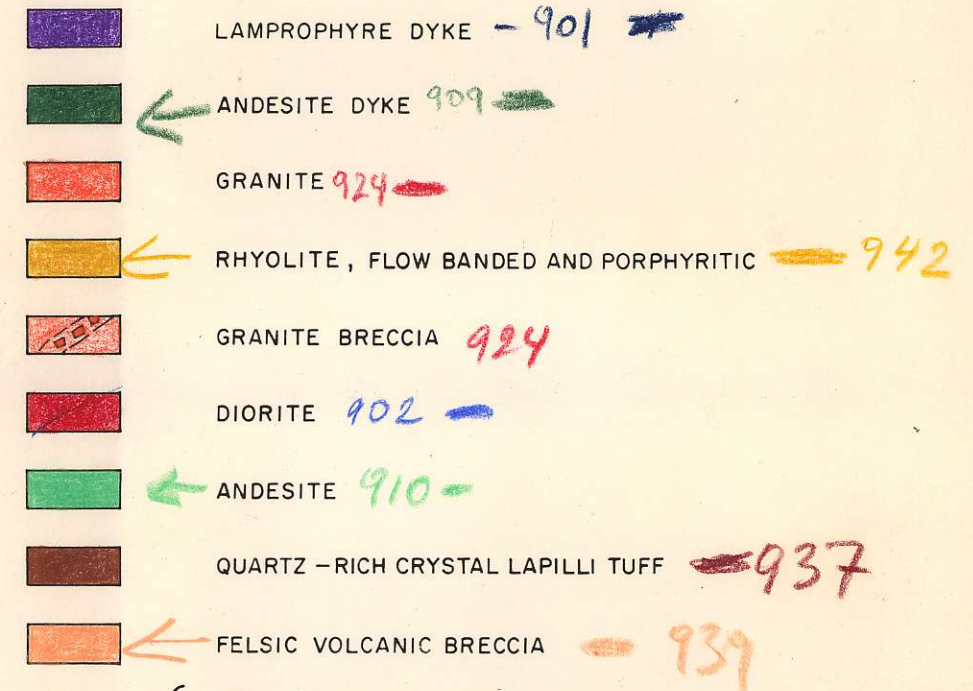 LAMPROPHYRE DYKE - 901
ANDESITE DYKE 909
GRANITE 924
RHYOLITE, FLOW BANDED AND PORPHYRITIC 942
GRANITE BRECCIA 924
DIORITE 902
ANDESITE 910
QUARTZ-RICH CRYSTAL LAPILLI TUFF 937
FELSIC VOLCANIC BRECCIA 939